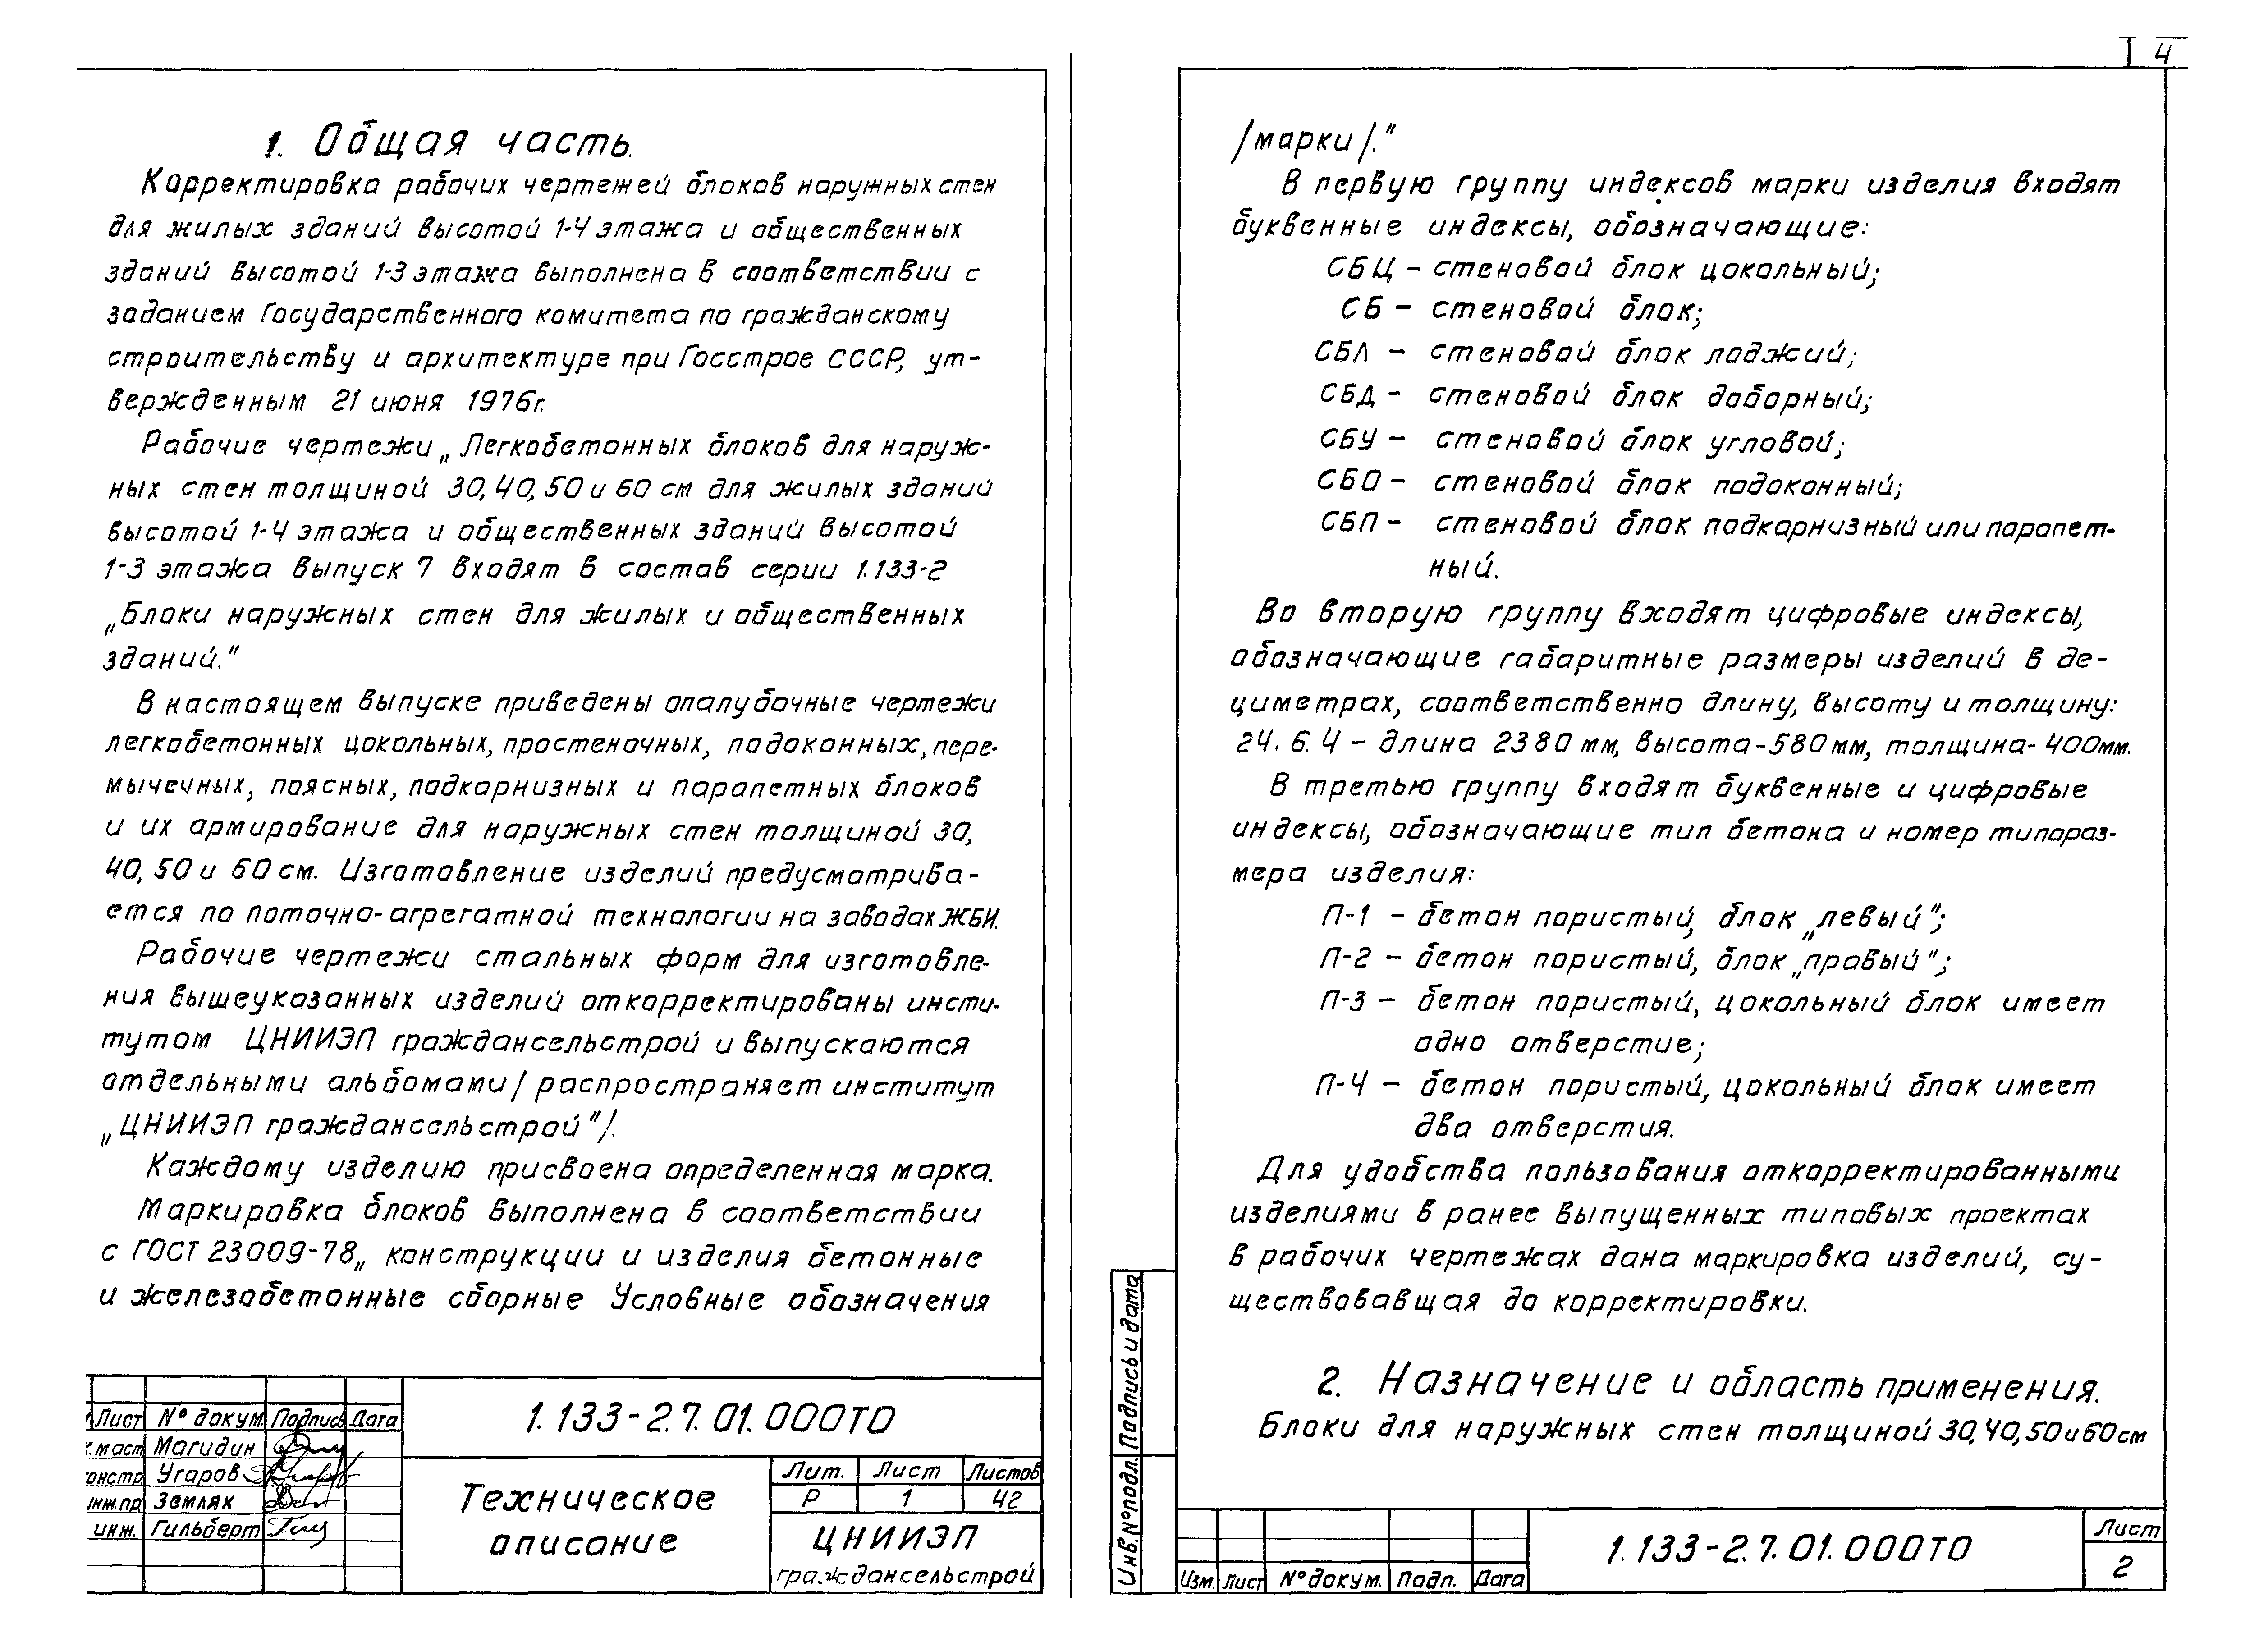 1. Общая часть.
Корректировка рабочих чертежей блоков наружных стен
для жилых зданий высотой 1-4 этажа и общественных
зданий высотой 1-3 этажа выполнена в соответствии с
заданием Государственного комитета по гражданскому
строительству и архитектуре при Госстрое СССР, ут-
вержденным 21 июня 1976г.
Рабочие чертежи „Легкобетонных блоков для наруж-
ных стен толщиной 30, 40, 50 и 60 см для жилых зданий
высотой 1-4 этажа и общественных зданий высотой
1-3 этажа выпуск 7 входят в состав серии 1.133-2
„Блоки наружных стен для жилых и общественных
зданий."
В настоящем выпуске приведены опалубочные чертежи
легкобетонных цокольных, простеночных, подоконных, пере-
мычечных, поясных, подкарнизных и парапетных блоков
и их армирование для наружных стен толщиной 30,
40, 50 и 60 см. Изготовление изделий предусматрива-
ется по поточно-агрегатной технологии на заводах ЖБИ.
Рабочие чертежи стальных форм для изготовле-
ния вышеуказанных изделий откорректированы инсти-
тутом ЦНИИЭП граждансельстрой и выпускаются
отдельными альбомами / распространяет институт
„ЦНИИЭП граждансельстрой"/.
Каждому изделию присвоена определенная марка.
Маркировка блоков выполнена в соответствии
с ГОСТ 23009-78 „ конструкции и изделия бетонные
и железобетонные сборные Условные обозначения
Лист № докум. Подпись Дата
маст Магидин
констр Угаров
инж.пр. Земляк
инж. Гильберт
1.133-2.7.01.000ТО
Техническое
описание
Лит. Лист Листов
Р 1 42
ЦНИИЭП
граждансельстрой
4
/марки/."
В первую группу индексов марки изделия входят
буквенные индексы, обозначающие:
СБЦ - стеновой блок цокольный;
СБ - стеновой блок;
СБЛ - стеновой блок лоджий;
СБД - стеновой блок доборный;
СБУ - стеновой блок угловой;
СБО - стеновой блок подоконный;
СБП - стеновой блок подкарнизный или парапет-
ный.
Во вторую группу входят цифровые индексы,
обозначающие габаритные размеры изделий в де-
циметрах, соответственно длину, высоту и толщину:
24. 6. 4 - длина 2380 мм, высота-580мм, толщина-400мм.
В третью группу входят буквенные и цифровые
индексы, обозначающие тип бетона и номер типораз-
мера изделия:
П-1 - бетон пористый, блок „левый";
П-2 - бетон пористый, блок „правый";
П-3 - бетон пористый, цокольный блок имеет
одно отверстие;
П-4 - бетон пористый, цокольный блок имеет
два отверстия.
Для удобства пользования откорректированными
изделиями в ранее выпущенных типовых проектах
в рабочих чертежах дана маркировка изделий, су-
ществовавшая до корректировки.
2. Назначение и область применения.
Блоки для наружных стен толщиной 30, 40, 50 и 60 см
Инв.№ подл. Подпись и дата
Изм. Лист № докум. Подп. Дата
1.133-2.7.01.000ТО
Лист
2